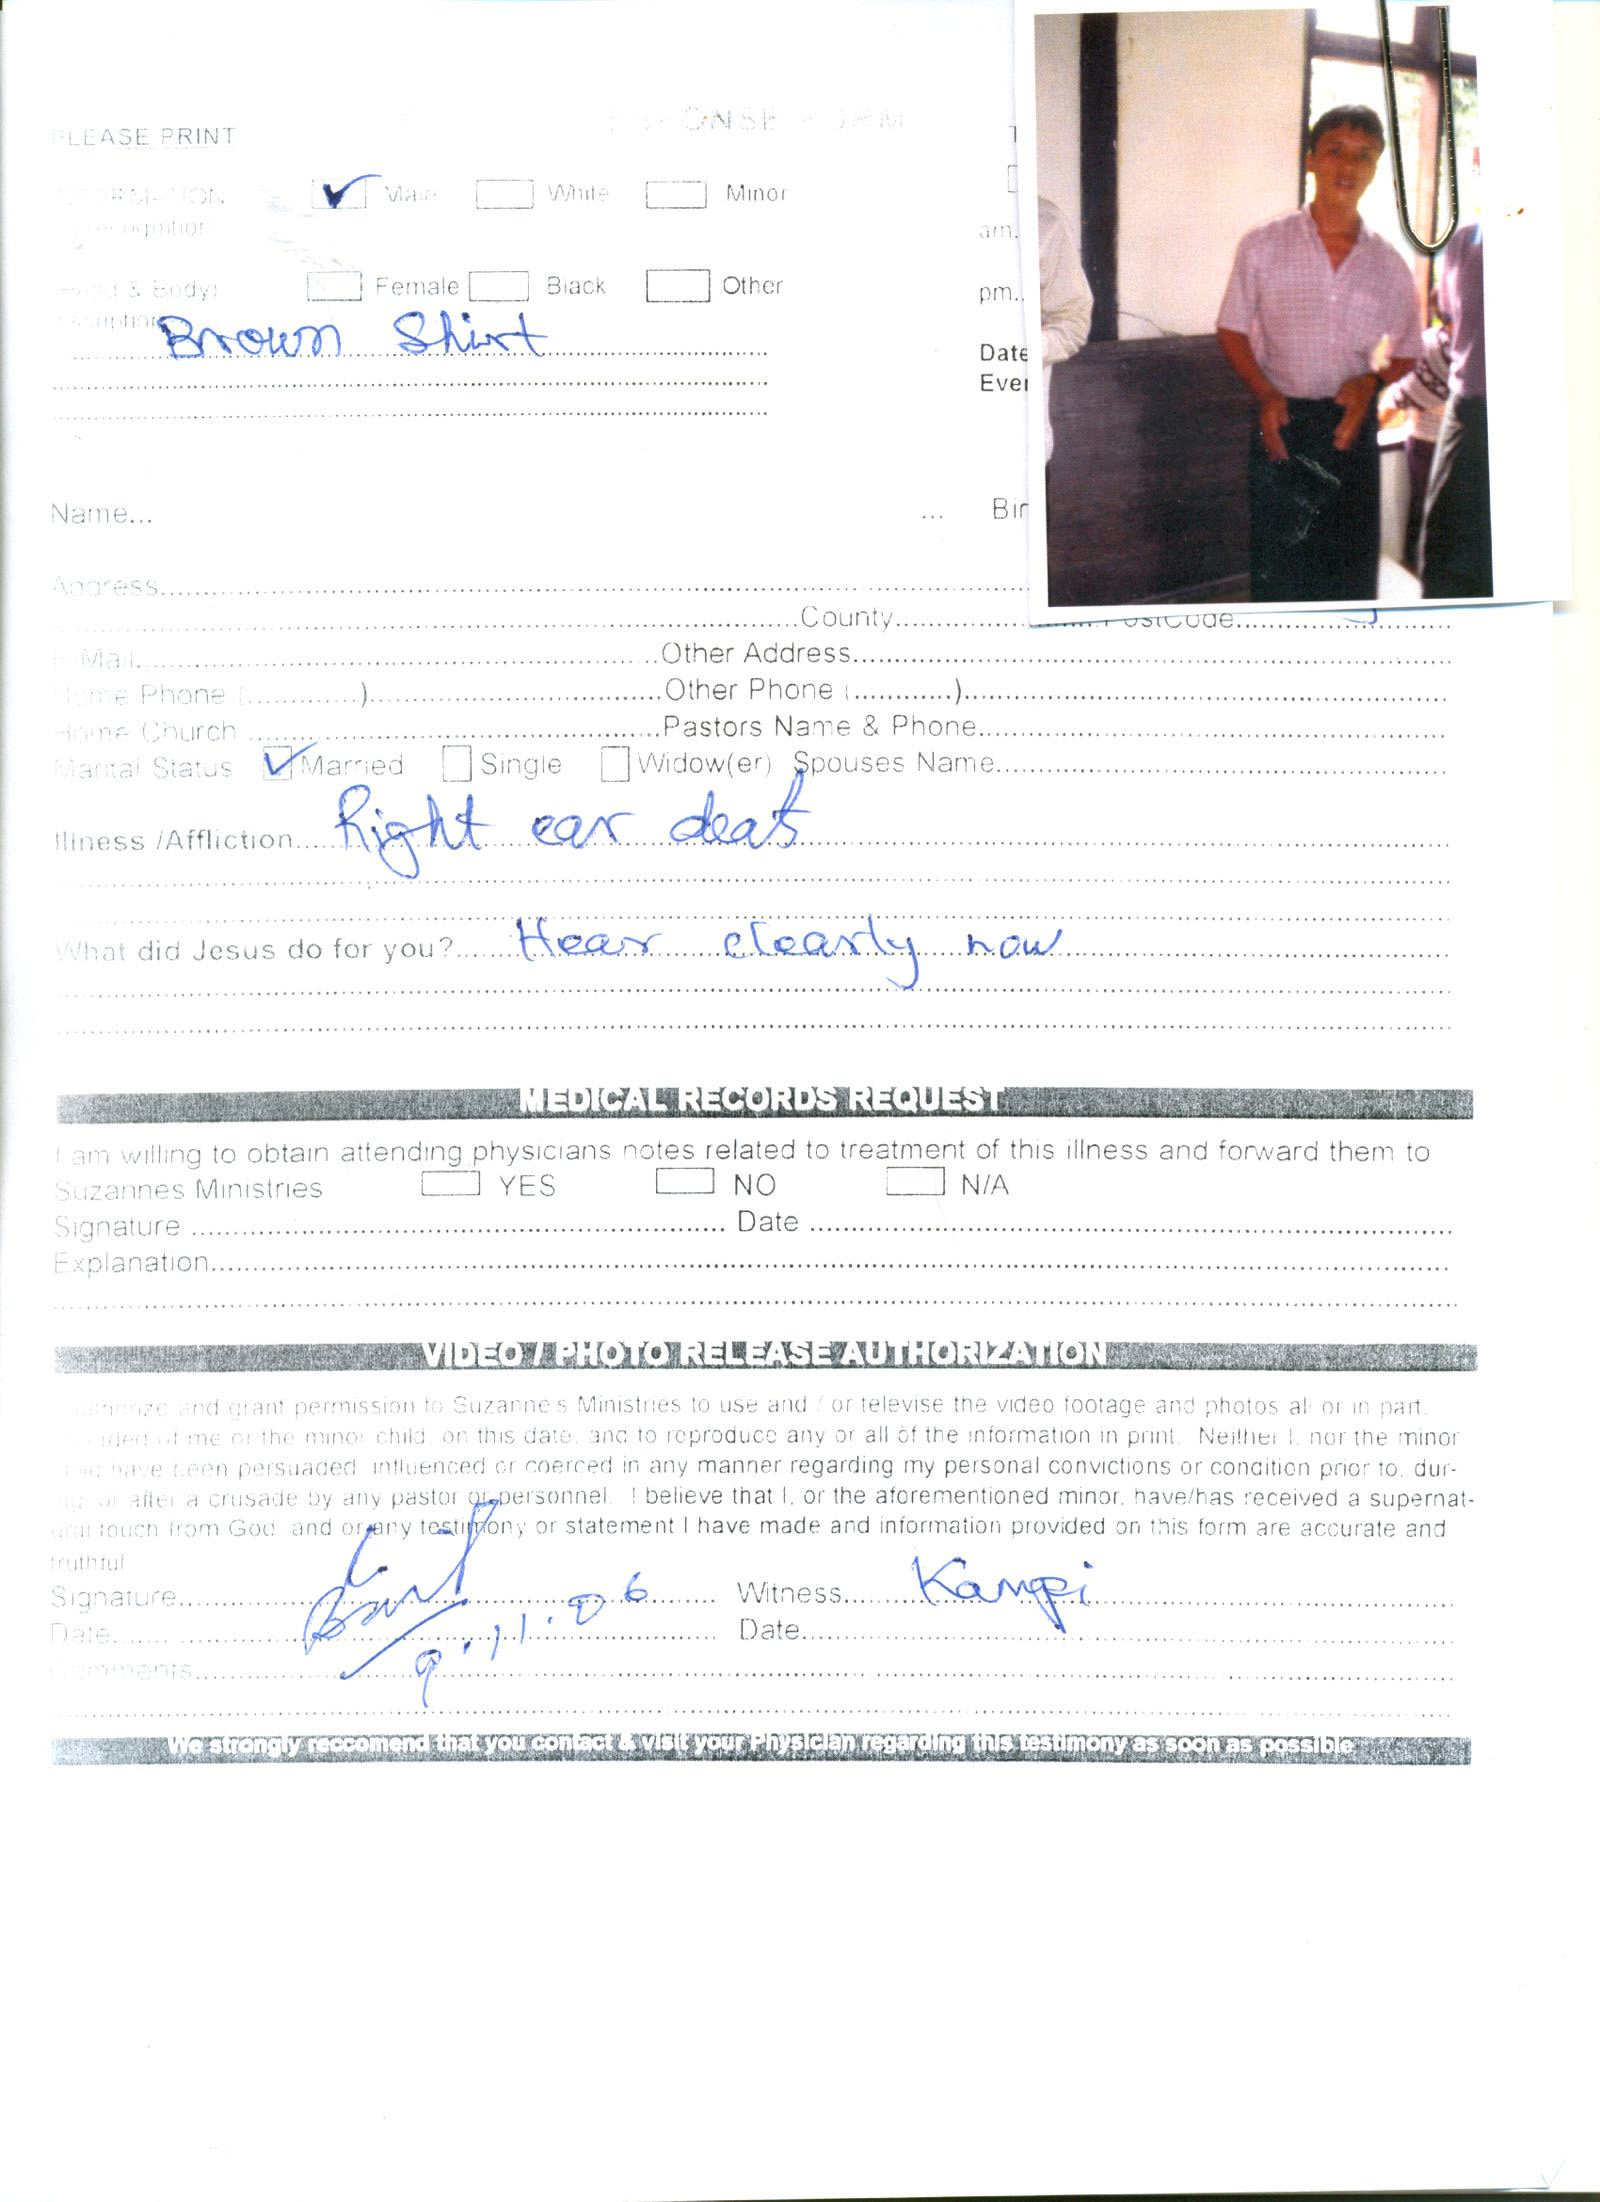 PLEASE PRINT
Male White Minor
am.
Head & Body: Female Black Other
pm..
Brown Shirt
Date
Name... ...
Address
County PostCode
E-Mail Other Address
Home Phone ( ) Other Phone ( )
Home Church Pastors Name & Phone
Marital Status Married Single Widow(er) Spouses Name
Illness /Affliction Right ear deaf
What did Jesus do for you? Hear clearly now
MEDICAL RECORDS REQUEST
I am willing to obtain attending physicians notes related to treatment of this illness and forward them to
Suzannes Ministries YES NO N/A
Signature Date
Explanation
VIDEO / PHOTO RELEASE AUTHORIZATION
and grant permission to Suzanne's Ministries to use and / or televise the video footage and photos all or in part,
of me or the minor child, on this date, and to reproduce any or all of the information in print. Neither I, nor the minor
have been persuaded, influenced or coerced in any manner regarding my personal convictions or condition prior to, dur-
or after a crusade by any pastor or personnel. I believe that I, or the aforementioned minor, have/has received a supernat-
ural touch from God, and or any testimony or statement I have made and information provided on this form are accurate and
truthful
Signature Witness Kampi
Date 9.11.06 Date
Comments
We strongly reccomend that you contact & visit your Physician regarding this testimony as soon as possible